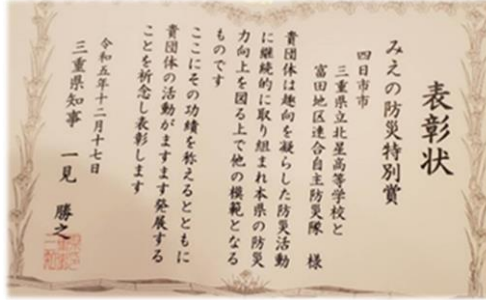 表彰状
みえの防災特別賞
四日市市
三重県立北星高等学校と
富田地区連合自主防災隊 様
貴団体は趣向を凝らした防災活動
に継続的に取り組まれ本県の防災
力向上を図る上で他の模範となる
ものです
ここにその功績を称えるとともに
貴団体の活動がますます発展する
ことを祈念し表彰します
令和五年十二月十七日
三重県知事 一見 勝之